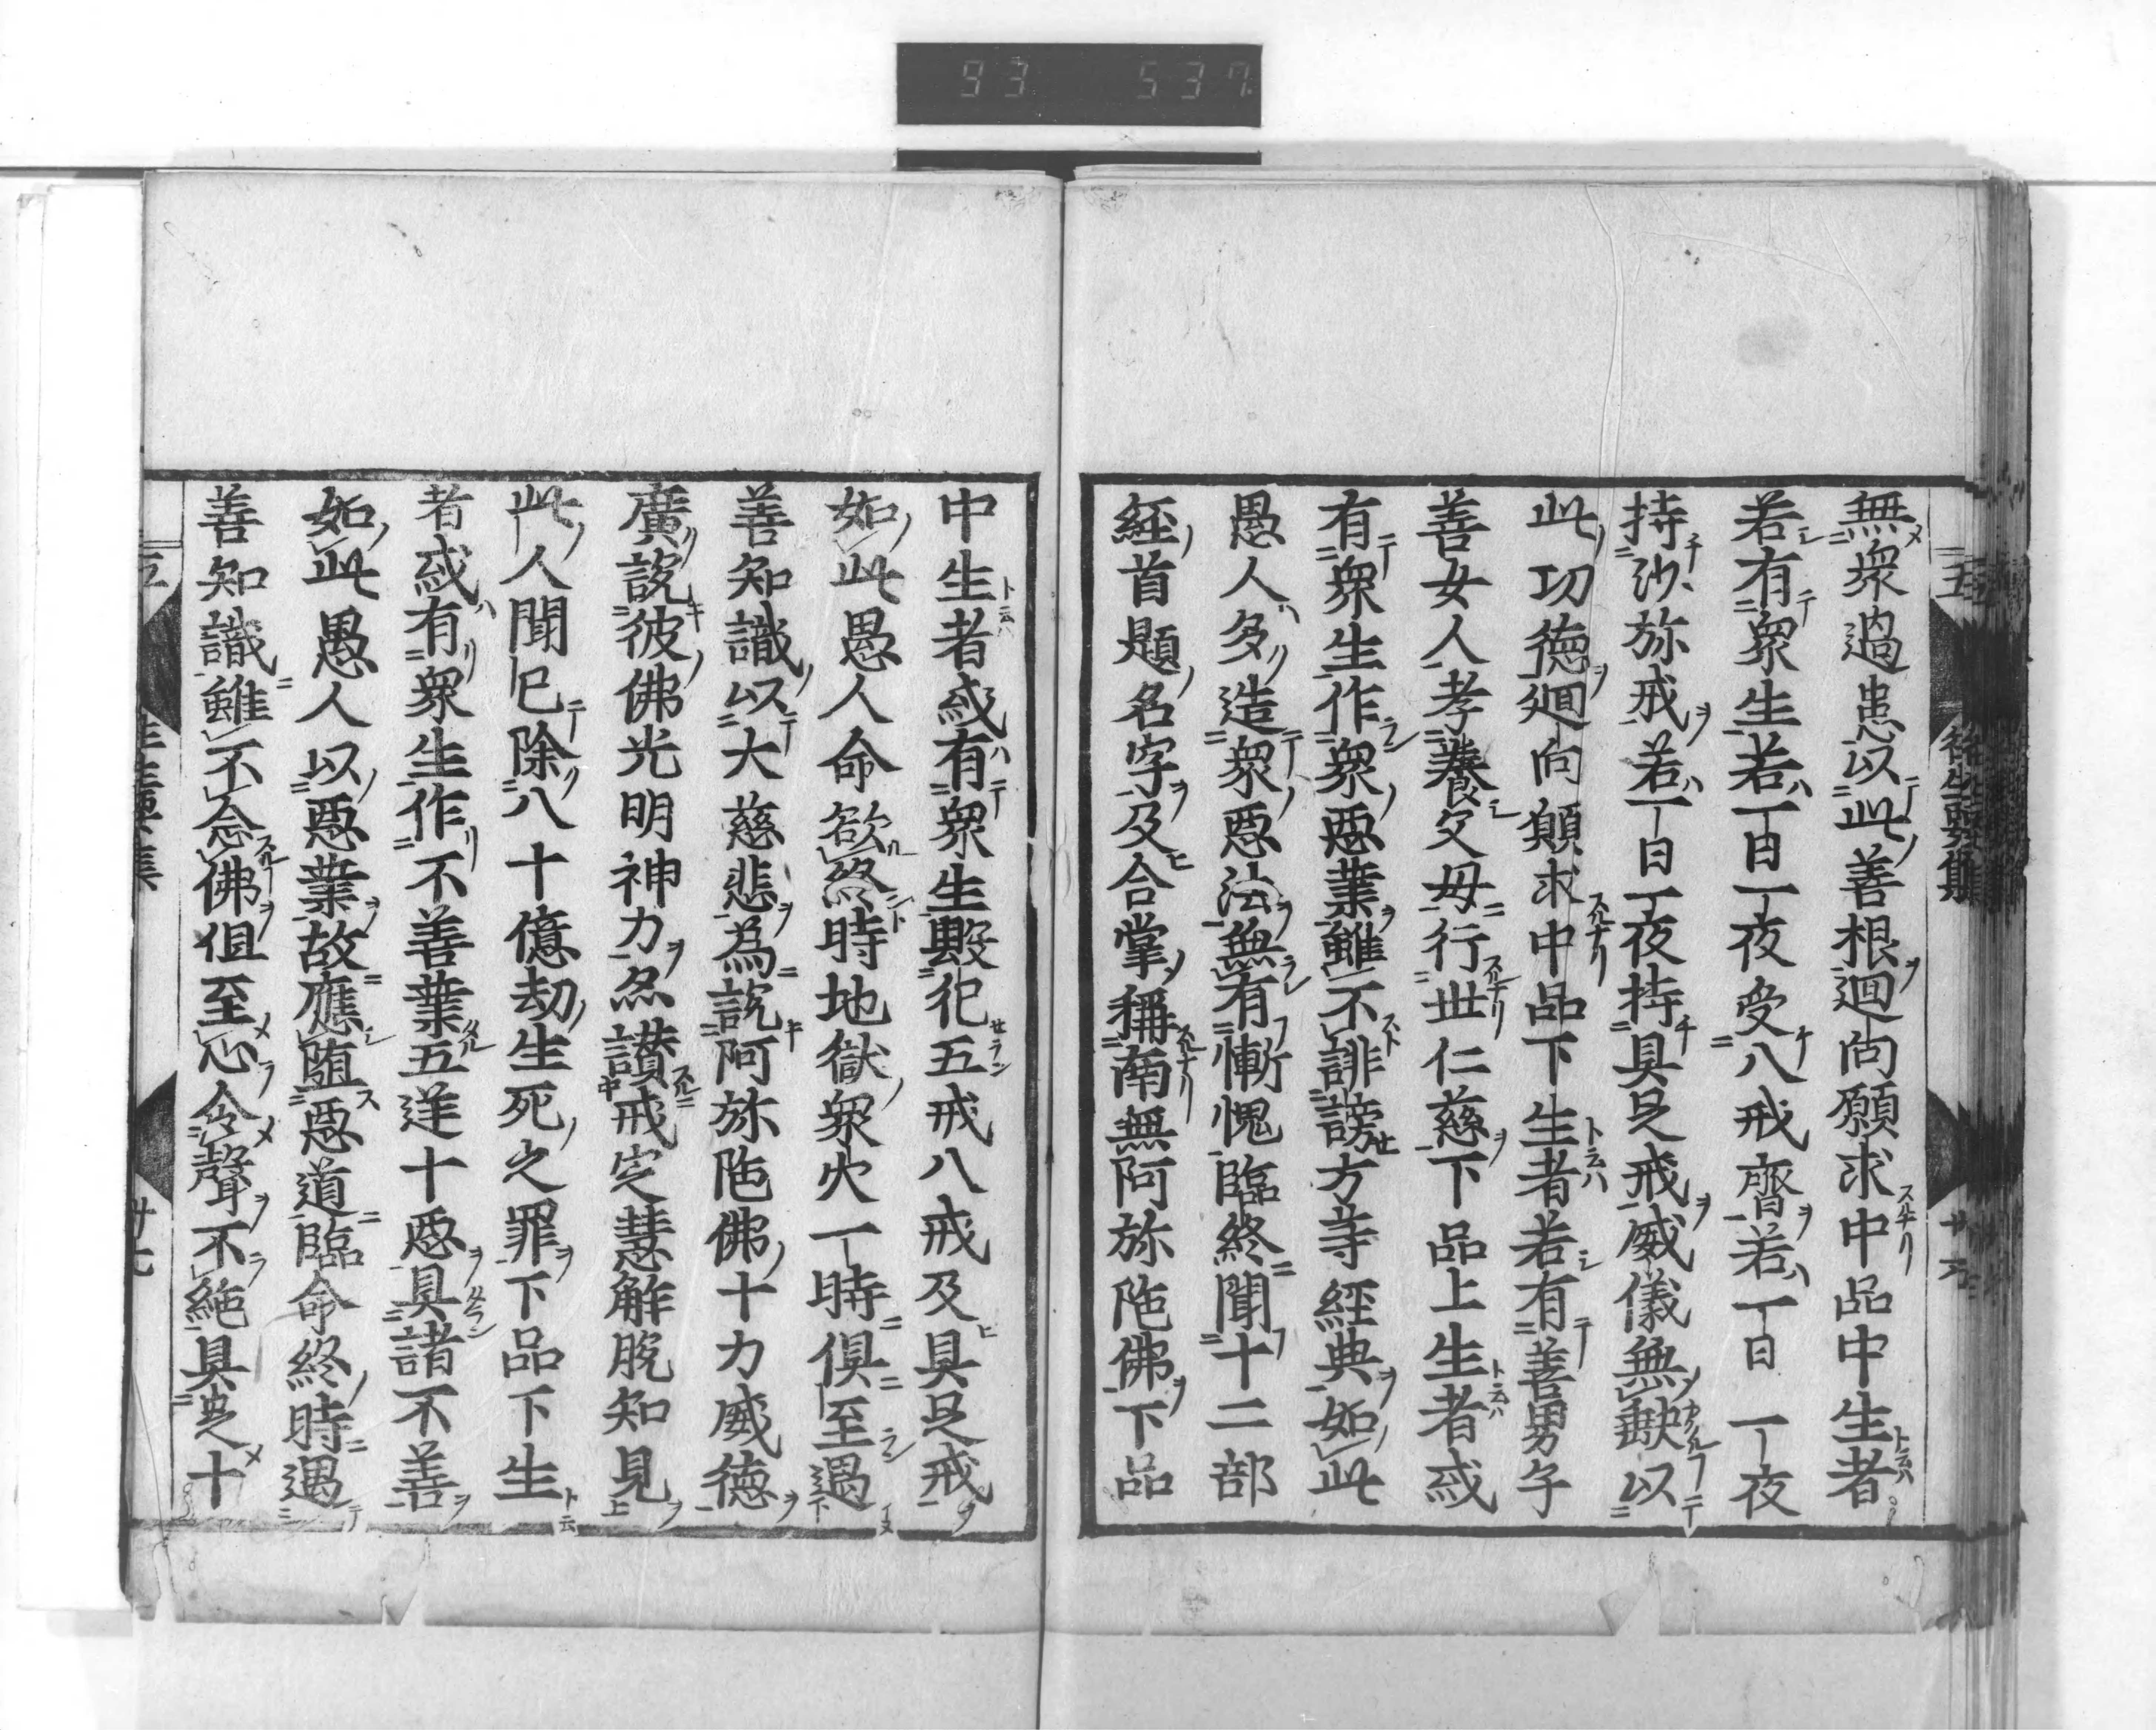 93 537
無衆過患以此善根迴向願求中品中生者
若有衆生若一日一夜受八戒齊若一日一夜
持沙弥戒若一日一夜持具足戒威儀無缺以
此功徳迴向願求中品下生者若有善男子
善女人孝養父母行世仁慈下品上生者或
有衆生作衆惡業雖不誹謗方等經典如此
愚人多造衆惡法無有慚愧臨終聞十二部
經首題名字及合掌稱南無阿弥陁佛下品
中生者或有衆生毀犯五戒八戒及具足戒
如此愚人命欲終時地獄衆火一時俱至遇
善知識以大慈悲為說阿弥陁佛十力威徳
廣說彼佛光明神力亦讃戒定慧解脫知見
此人聞已除八十億劫生死之罪下品下生
者或有衆生作不善業五逆十惡具諸不善
如此愚人以惡業故應墮惡道臨命終時遇
善知識雖不念佛但至心令聲不絶具足十